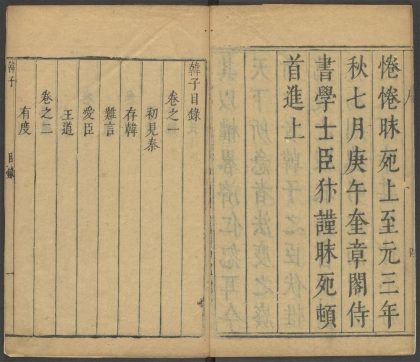 惓惓昧死上至元三年
秋七月庚午奎章閣侍
書學士臣犿謹昧死頓
首進上
韓子目錄
卷之一
初見秦
存韓
難言
愛臣
王道
卷之二
有度
韓子
目錄
一